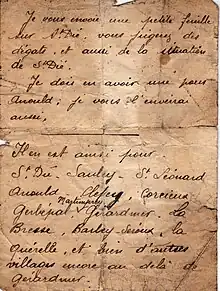 Je vous envoie une petite feuille
sur St Dié. vous jugerez des
dégats, et aussi de la situation
de St Dié.
Je dois en avoir une pour
Anould; je vous l'enverai
aussi.
Il en est ainsi pour.
St Dié. Saulcy. St Léonard
Anould, Clefcy, Corcieux,
Martimprey
Gerbépal, Gérardmer. la
Bresse, Barbey-Seroux, la
, et bien d'autres
villages encore au delà de
Gérardmer.